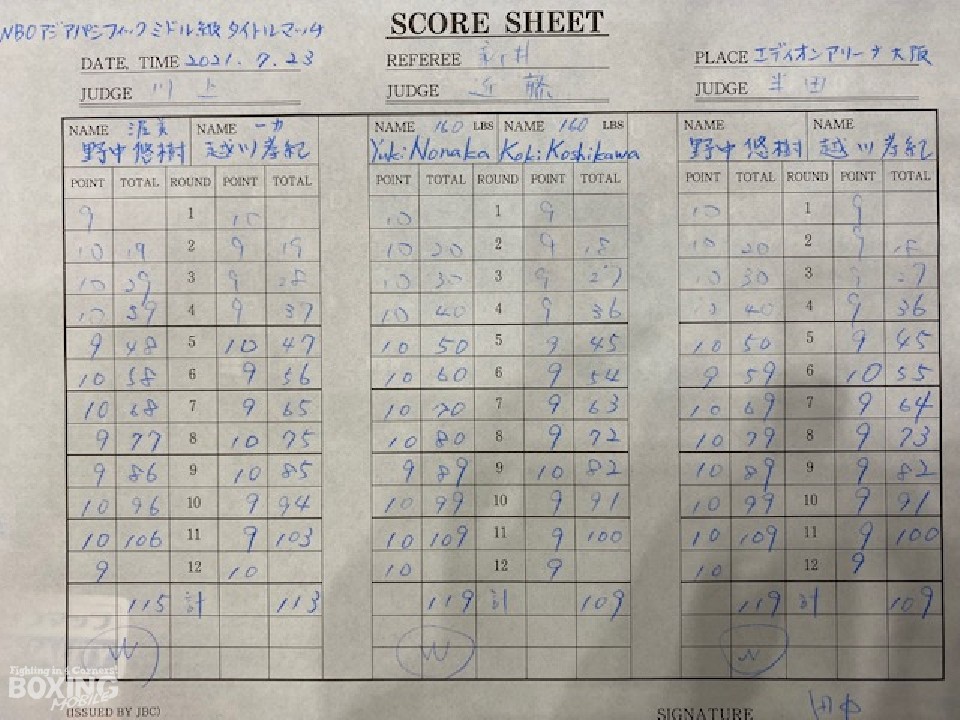 SCORE SHEET
WBOアジアパシフィックミドル級タイトルマッチ
DATE, TIME 2021.7.23 REFEREE 新井 PLACE エディオンアリーナ大阪
JUDGE 川上 JUDGE 近藤 JUDGE 半田
NAME 渥美 NAME 一力 NAME 160 LBS NAME 160 LBS NAME NAME
野中悠樹 越川孝紀 Yuki Nonaka Koki Koshikawa 野中悠樹 越川孝紀
POINT TOTAL ROUND POINT TOTAL POINT TOTAL ROUND POINT TOTAL POINT TOTAL ROUND POINT TOTAL
9 1 10 10 1 9 10 1 9
10 19 2 9 19 10 20 2 9 18 10 20 2 9 18
10 29 3 9 28 10 30 3 9 27 10 30 3 9 27
10 39 4 9 37 10 40 4 9 36 10 40 4 9 36
9 48 5 10 47 10 50 5 9 45 10 50 5 9 45
10 58 6 9 56 10 60 6 9 54 9 59 6 10 55
10 68 7 9 65 10 70 7 9 63 10 69 7 9 64
9 77 8 10 75 10 80 8 9 72 10 79 8 9 73
9 86 9 10 85 9 89 9 10 82 10 89 9 9 82
10 96 10 9 94 10 99 10 9 91 10 99 10 9 91
10 106 11 9 103 10 109 11 9 100 10 109 11 9 100
9 12 10 10 12 9 10 12 9
115 計 113 119 計 109 119 計 109
W W W
Fighting in 4 Corners!
BOXING
MOBILE
(ISSUED BY JBC) SIGNATURE 田中